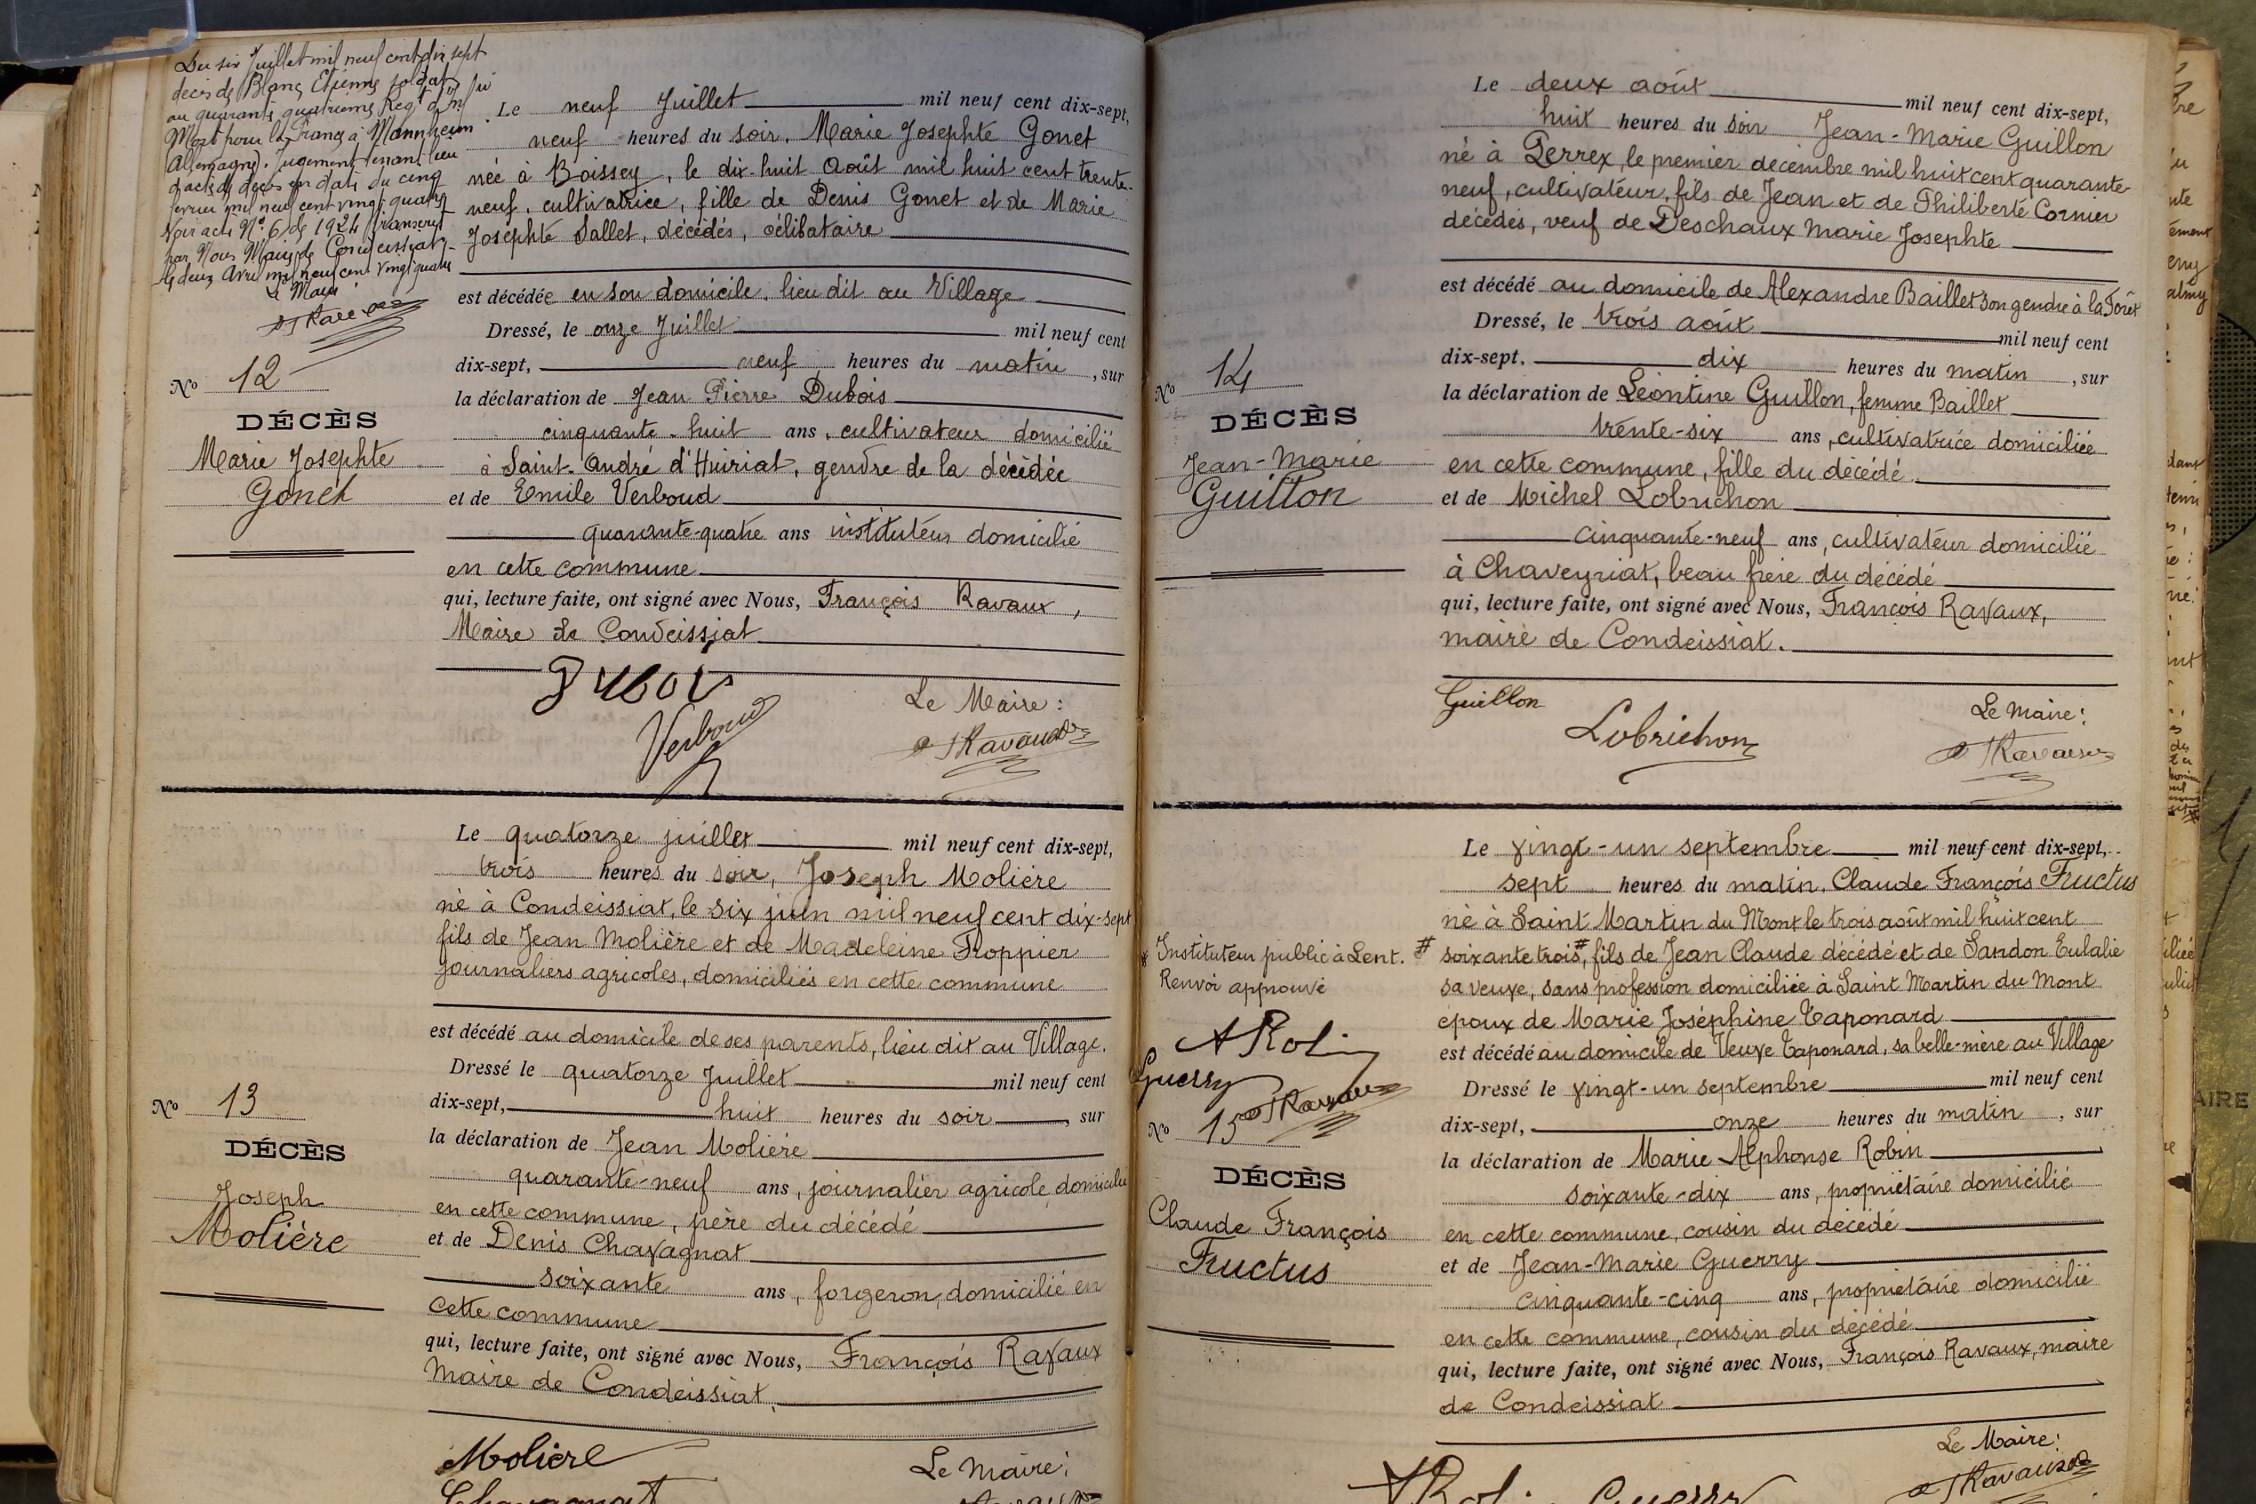 Du six Juillet mil neuf cent dix sept
décès de Blanc Etienne soldat
au quarante quatrième Régt d'Inf.
Mort pour la France à Mannheim
(Allemagne). Jugement tenant lieu
d'acte de décès en date du cinq
février mil neuf cent vingt quatre
Voir acte N° 6 de 1924 transcrit
par Nous Maire de Condeissiat
le deux Avril mil neuf cent vingt quatre
Le Maire
Ravaux
No 12
DÉCÈS
Marie Josephte
Gonet
Le neuf Juillet mil neuf cent dix-sept,
neuf heures du soir, Marie Josephte Gonet
née à Boissey, le dix-huit Août mil huit cent trente-
neuf, cultivatrice, fille de Denis Gonet et de Marie
Josephte Sallet, décédés, célibataire
est décédée en son domicile, lieu dit au Village
Dressé, le onze Juillet mil neuf cent
dix-sept, neuf heures du matin, sur
la déclaration de Jean Pierre Dubois
cinquante-huit ans, cultivateur domicilié
à Saint-André d'Huiriat, gendre de la décédée
et de Emile Verboud
quarante-quatre ans instituteur domicilié
en cette commune
qui, lecture faite, ont signé avec Nous, François Ravaux,
Maire de Condeissiat
Dubois
Verboud
Le Maire:
Ravaux
No 13
DÉCÈS
Joseph
Molière
Le quatorze juillet mil neuf cent dix-sept,
trois heures du soir, Joseph Molière
né à Condeissiat, le six juin mil neuf cent dix-sept
fils de Jean Molière et de Madeleine Froppier
journaliers agricoles, domiciliés en cette commune
est décédé au domicile de ses parents, lieu dit au Village.
Dressé le quatorze Juillet mil neuf cent
dix-sept, huit heures du soir, sur
la déclaration de Jean Molière
quarante-neuf ans, journalier agricole, domicilié
en cette commune, père du décédé
et de Denis Chavagnat
soixante ans, forgeron, domicilié en
cette commune
qui, lecture faite, ont signé avec Nous, François Ravaux
Maire de Condeissiat.
Molière
Chavagnat
Le Maire:
Ravaux
No 14
DÉCÈS
Jean-Marie
Guillon
Le deux août mil neuf cent dix-sept,
huit heures du soir Jean-Marie Guillon
né à Perrex, le premier décembre mil huit cent quarante-
neuf, cultivateur, fils de Jean et de Philiberte Cornier
décédés, veuf de Deschaux Marie Josephte
est décédé au domicile de Alexandre Baillet son gendre à la Forêt
Dressé, le trois août mil neuf cent
dix-sept, dix heures du matin, sur
la déclaration de Léontine Guillon, femme Baillet
trente-six ans, cultivatrice domiciliée
en cette commune, fille du décédé
et de Michel Lobrichon
cinquante-neuf ans, cultivateur domicilié
à Chaveyriat, beau frère du décédé
qui, lecture faite, ont signé avec Nous, François Ravaux,
maire de Condeissiat.
Guillon
Lobrichon
Le Maire:
Ravaux
# Instituteur public à Lent.
Renvoi approuvé
A Robin
Guerry
Ravaux
No 15
DÉCÈS
Claude François
Fructus
Le vingt-un septembre mil neuf cent dix-sept,
sept heures du matin, Claude François Fructus
né à Saint Martin du Mont le trois août mil huit cent
# soixante trois #, fils de Jean Claude décédé et de Sandon Eulalie
sa veuve, sans profession domiciliée à Saint Martin du Mont
époux de Marie Joséphine Taponard
est décédé au domicile de Veuve Taponard, sa belle-mère au Village
Dressé le vingt-un septembre mil neuf cent
dix-sept, onze heures du matin, sur
la déclaration de Marie Alphonse Robin
soixante-dix ans, propriétaire domicilié
en cette commune, cousin du décédé
et de Jean-Marie Guerry
cinquante-cinq ans, propriétaire domicilié
en cette commune, cousin du décédé
qui, lecture faite, ont signé avec Nous, François Ravaux, maire
de Condeissiat
Le Maire:
A Robin
Guerry
Ravaux